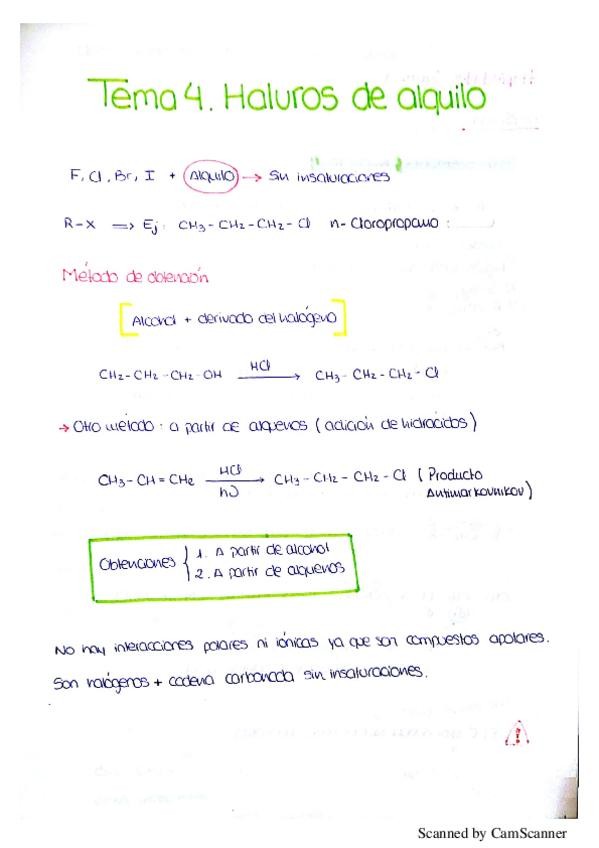 Tema 4. Haluros de alquilo
F, Cl, Br, I + Alquilo → Sin insaturaciones
R-X ⇒ Ej: CH3-CH2-CH2-Cl n-Cloropropano :
Método de obtención
[Alcohol + derivado del halógeno]
CH2-CH2-CH2-OH HCl → CH3-CH2-CH2-Cl
→ Otro método: a partir de alquenos (adición de hidrácidos)
CH3-CH=CH2 HCl hυ → CH3-CH2-CH2-Cl (Producto
Antimarkovnikov)
Obtenciones { 1. A partir de alcohol
2. A partir de alquenos
No hay interacciones polares ni iónicas ya que son compuestos apolares.
Son halógenos + cadena carbonada sin insaturaciones.
!
Scanned by CamScanner